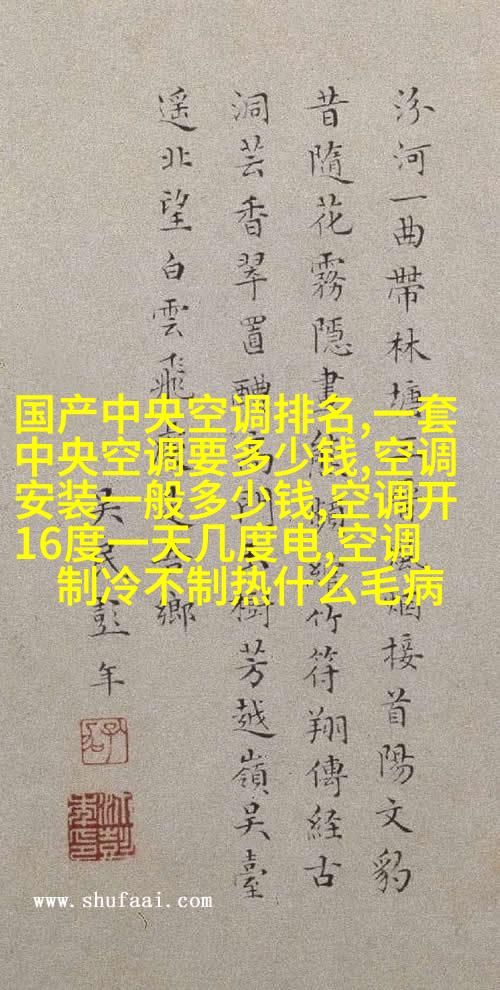 国产中央空调排名,一套
中央空调要多少钱,空调
安装一般多少钱,空调开
16度一天几度电,空调
制冷不制热什么毛病
汾河一曲帶林塘接首陽文豹
昔隨花霧隱竹符翔傳経古
洞芸香翠置醴門樹芳越嶺吳臺
遥北望白雲飛鄉
吳民彭年
www.shufaai.com